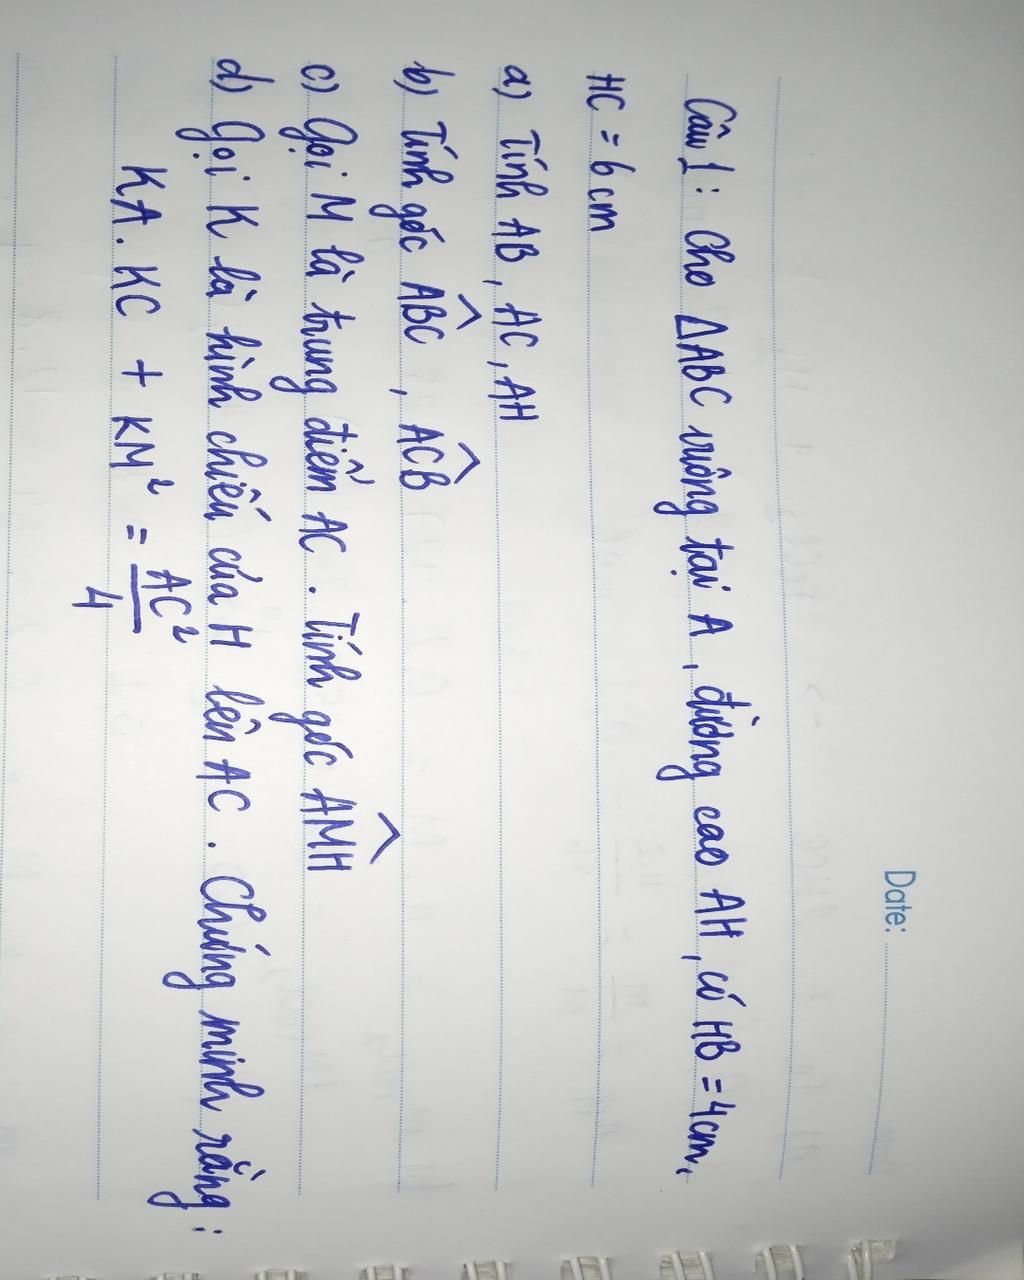 Date:
Câu 1: Cho ΔABC vuông tại A, đường cao AH, có HB = 4cm,
HC = 6 cm
a) Tính AB, AC, AH
b) Tính góc ABC^, ACB^
c) Gọi M là trung điểm AC. Tính góc AMH^
d) Gọi K là hình chiếu của H lên AC. Chứng minh rằng:
KA. KC + KM² = AC²/4